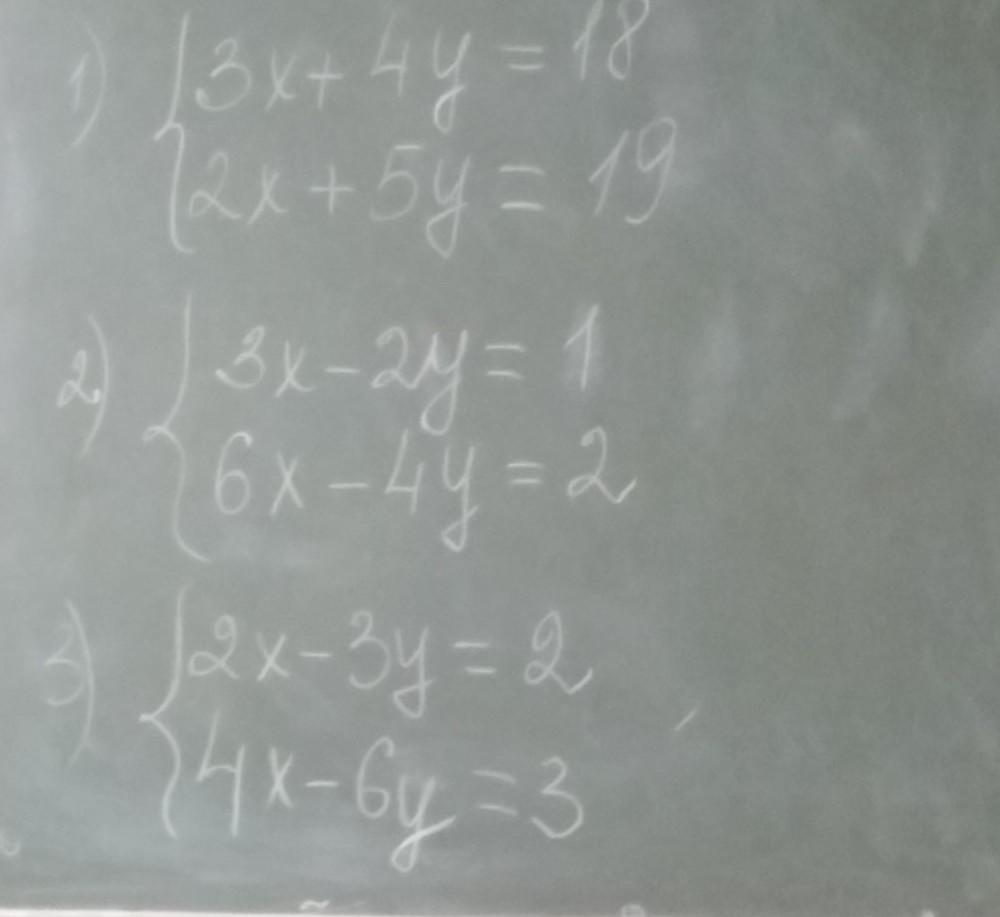 1) { 3x + 4y = 18
2x + 5y = 19
2) { 3x - 2y = 1
6x - 4y = 2
3) { 2x - 3y = 2
4x - 6y = 3